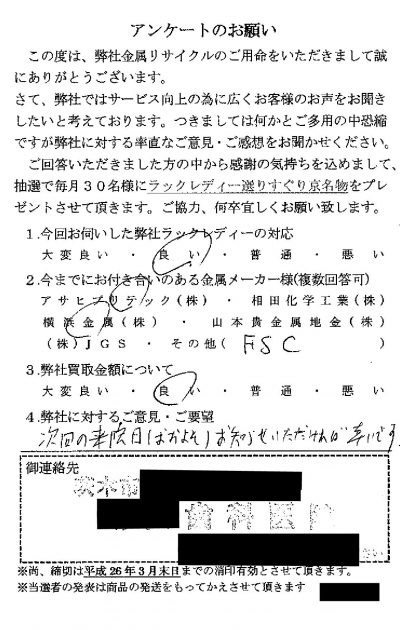 アンケートのお願い
この度は、弊社金属リサイクルのご用命をいただきまして誠
にありがとうございます。
さて、弊社ではサービス向上の為に広くお客様のお声をお聞き
したいと考えております。つきましては何かとご多用の中恐縮
ですが弊社に対する率直なご意見・ご感想をお聞かせください。
ご回答いただきました方の中から感謝の気持ちを込めまして、
抽選で毎月30名様にラックレディー選りすぐり京名物をプレ
ゼントさせて頂きます。ご協力、何卒宜しくお願い致します。
1.今回お伺いした弊社ラックレディーの対応
大変良い・良い・普通・悪い
2.今までにお付き合いのある金属メーカー様(複数回答可)
アサヒプリテック(株)・相田化学工業(株)
横浜金属(株)・山本貴金属地金(株)
(株)JGS・その他(FSC)
3.弊社買取金額について
大変良い・良い・普通・悪い
4.弊社に対するご意見・ご要望
次回の来院日はおおよそお知らせいただければ幸いです
御連絡先
茨木市
歯科医院
※尚、締切は平成26年3月末日までの消印有効とさせて頂きます。
※当選者の発表は商品の発送をもってかえさせて頂きます